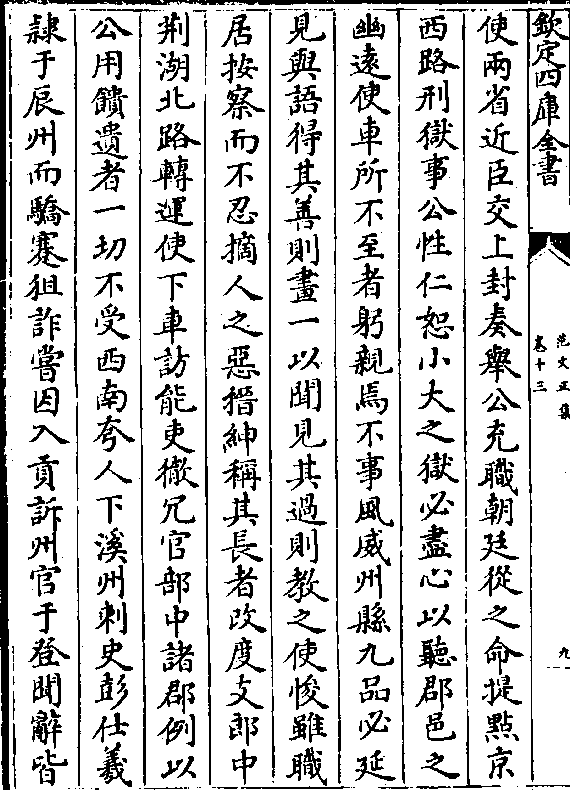 欽定四庫全書
范文正集
卷十三
九
使兩省近臣交上封奏舉公充職朝廷從之命提點京
西路刑獄事公性仁恕小大之獄必盡心以聽郡邑之
幽遠使車所不至者躬親焉不事風威州縣九品必延
見與語得其善則畫一以聞見其過則教之使悛雖職
居按察而不忍摘人之惡搢紳稱其長者改度支郎中
荆湖北路轉運使下車訪能吏徹冗官部中諸郡例以
公用饋遺者一切不受西南夸人下溪州刺史彭仕羲
隸于辰州而驕蹇狙詐嘗因入貢訴州官于登聞辭皆